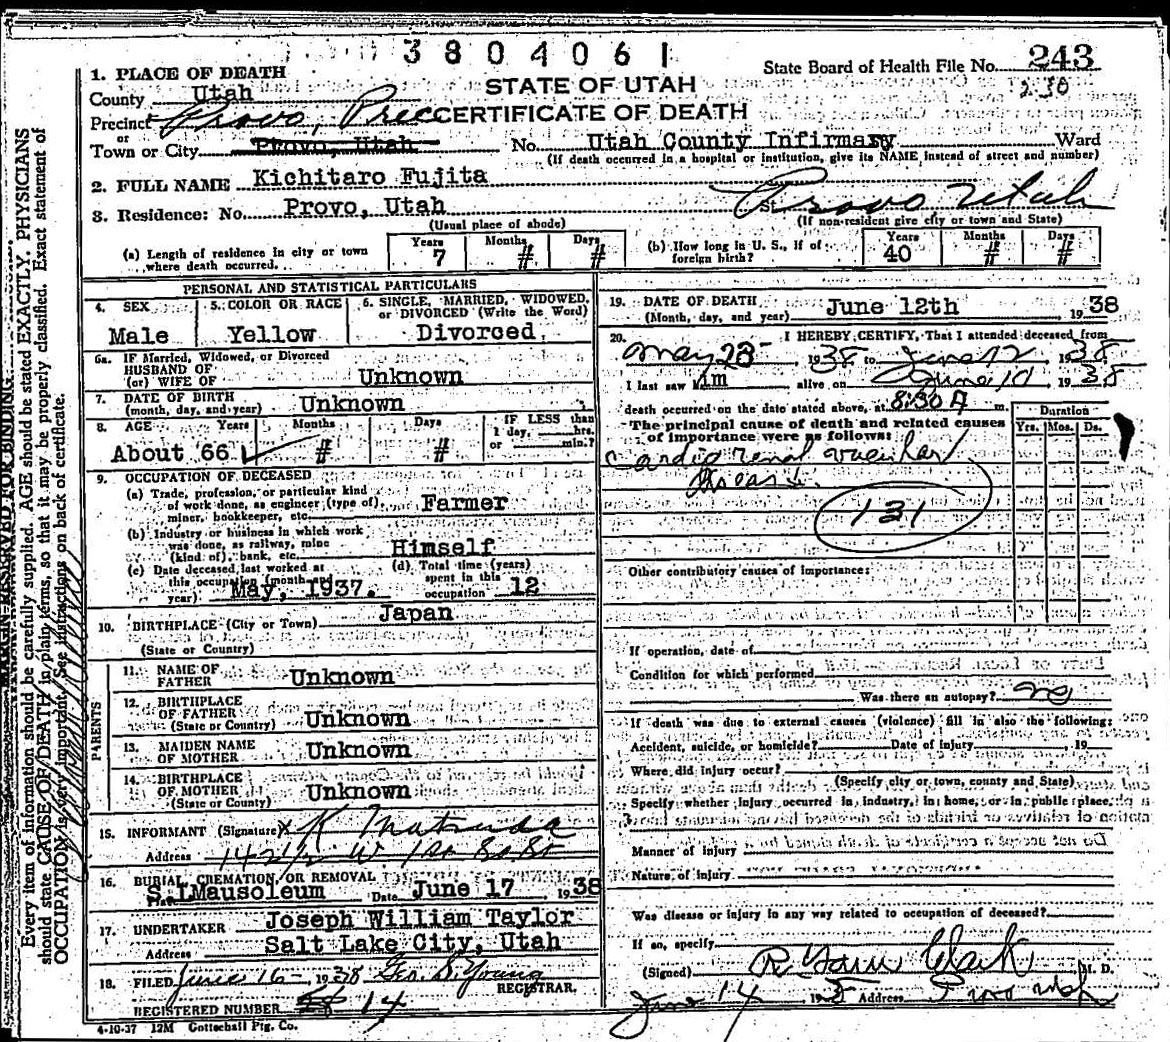 3804061
State Board of Health File No. 243
230
1. PLACE OF DEATH
STATE OF UTAH
County Utah
Precinct Provo, Prec
CERTIFICATE OF DEATH
or
Town or City Provo, Utah No. Utah County Infirmary Ward
(If death occurred in a hospital or institution, give its NAME instead of street and number)
2. FULL NAME Kichitaro Fujita
3. Residence: No. Provo, Utah St. Provo Utah
(Usual place of abode) (If non-resident give city or town and State)
(a) Length of residence in city or town where death occurred. Years 7 Months # Days #
(b) How long in U. S., if of foreign birth? Years 40 Months # Days #
PERSONAL AND STATISTICAL PARTICULARS
4. SEX Male
5. COLOR OR RACE Yellow
6. SINGLE, MARRIED, WIDOWED, or DIVORCED (Write the Word) Divorced
6a. IF Married, Widowed, or Divorced
HUSBAND OF
(or) WIFE OF Unknown
7. DATE OF BIRTH
(month, day, and year) Unknown
8. AGE About 66 Years Months # Days # IF LESS than 1 day, hrs. or min.?
9. OCCUPATION OF DECEASED
(a) Trade, profession, or particular kind
of work done, as engineer (type of),
miner, bookkeeper, etc. Farmer
(b) Industry or business in which work
was done, as railway, mine
(kind of) bank, etc. Himself
(c) Date deceased last worked at
this occupation (month and
year) May, 1937.
(d) Total time (years)
spent in this
occupation 12
10. BIRTHPLACE (City or Town) Japan
(State or Country)
PARENTS
11. NAME OF
FATHER Unknown
12. BIRTHPLACE
OF FATHER
(State or Country) Unknown
13. MAIDEN NAME
OF MOTHER Unknown
14. BIRTHPLACE
OF MOTHER
(State or County) Unknown
15. INFORMANT (Signature) X K Matsuda
Address 142½ W 1 So
16. BURIAL, CREMATION, OR REMOVAL
Place S. L Mausoleum Date June 17 1938
17. UNDERTAKER Joseph William Taylor
Address Salt Lake City, Utah
18. FILED June 16 - 1938 Geo. S. Young
REGISTRAR.
REGISTERED NUMBER 14
4-10-37 12M Gottschall Ptg. Co.
19. DATE OF DEATH
(Month, day, and year) June 12th 1938
20. I HEREBY CERTIFY, That I attended deceased from
May 23 1938 to June 12 1938
I last saw him alive on June 10 1938
death occurred on the date stated above, at 8:30 A m.
The principal cause of death and related causes
of importance were as follows:
Duration
Yrs. Mos. Ds.
Cardio renal vascular
disease
131
Other contributory causes of importance:
If operation, date of
Condition for which performed
Was there an autopsy? no
If death was due to external causes (violence) fill in also the following:
Accident, suicide, or homicide? Date of injury , 19
Where did injury occur?
(Specify city or town, county and State)
Specify whether injury occurred in industry, in home, or in public place,
Manner of injury
Nature of injury
Was disease or injury in any way related to occupation of deceased?
If so, specify
(Signed) Clark M. D.
June 14 Address Provo Utah
MARGIN RESERVED FOR BINDING
Every item of information should be carefully supplied. AGE should be stated EXACTLY. PHYSICIANS
should state CAUSE OF DEATH in plain terms, so that it may be properly classified. Exact statement of
OCCUPATION is very important. See instructions on back of certificate.